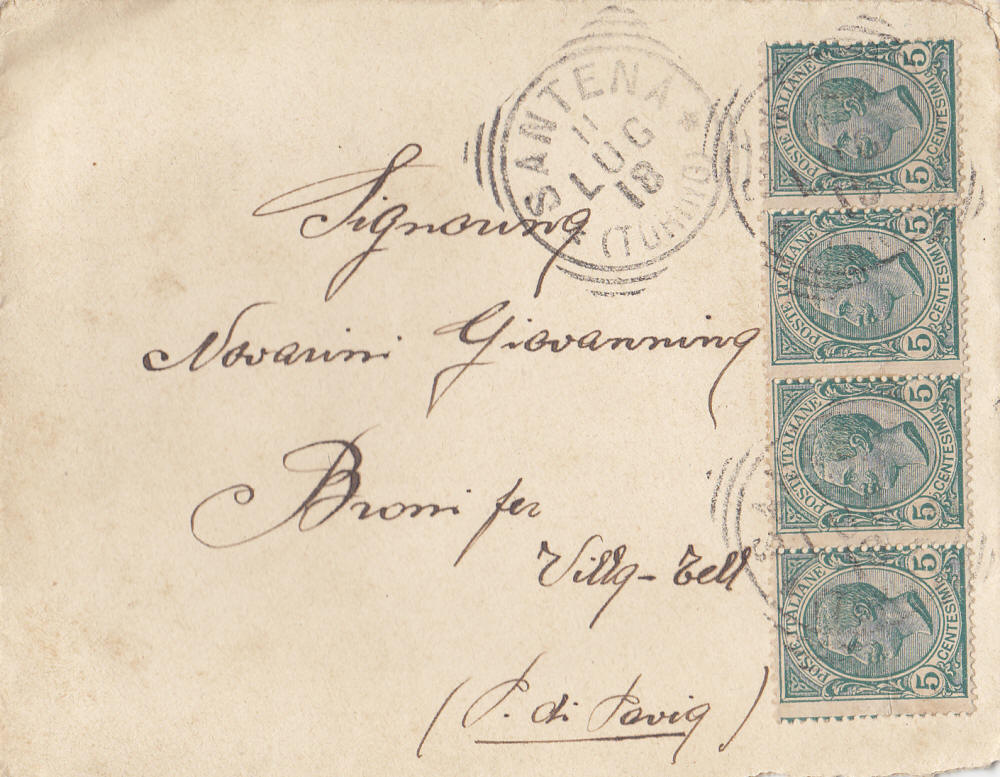 SANTENA * (TORINO)
11
LUG
18
Signorina
Novarini Giovannina
Broni per
Villa-Tell
(P. di Pavia)
POSTE ITALIANE
5 CENTESIMI 5
POSTE ITALIANE
5 CENTESIMI 5
POSTE ITALIANE
5 CENTESIMI 5
POSTE ITALIANE
5 CENTESIMI 5